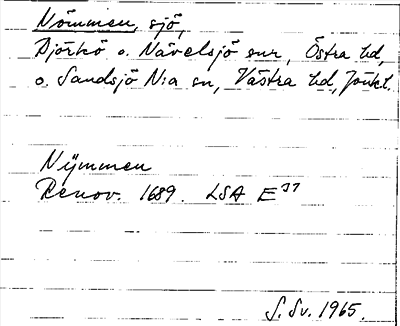 Nömmen, sjö,
Björkö o. Nävelsjö snr, Östra hd,
o. Sandsjö N:a sn, Västra hd, Jönk.l.
Nÿmmen
Renov. 1689. LSA E³⁷
S. Sv. 1965.